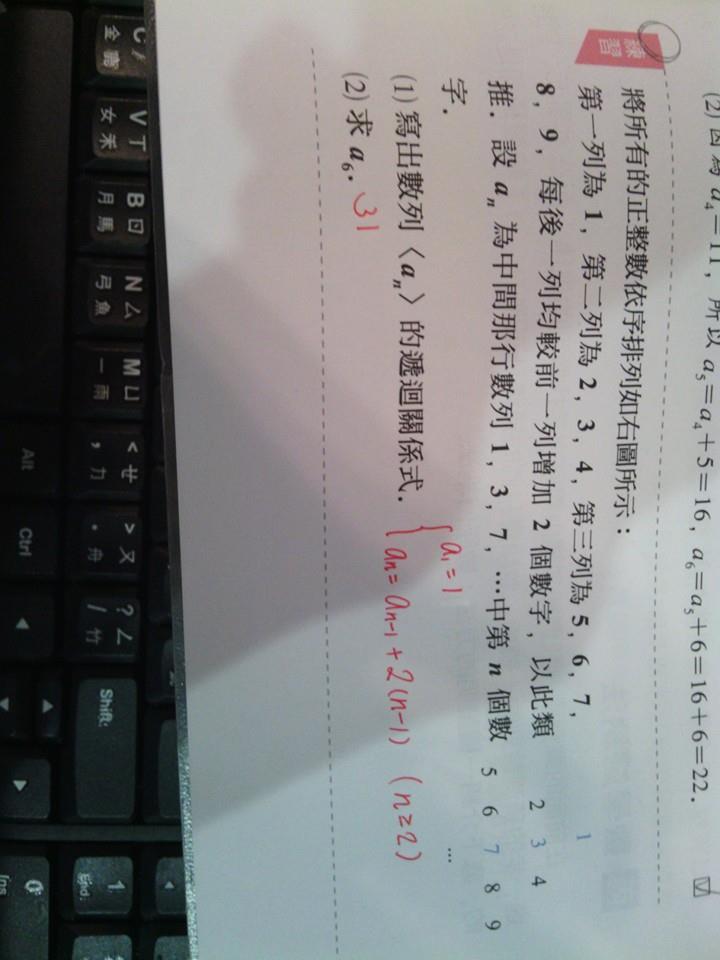 (2) 因為 a₄=11，所以 a₅=a₄+5=16，a₆=a₅+6=16+6=22．
練習
將所有的正整數依序排列如右圖所示：
第一列為 1，第二列為 2，3，4，第三列為 5，6，7，
8，9，每後一列均較前一列增加 2 個數字，以此類
推．設 aₙ 為中間那行數列 1，3，7，…中第 n 個數
字．
1
2 3 4
5 6 7 8 9
…
(1) 寫出數列〈aₙ〉的遞迴關係式．
{a₁=1
aₙ=aₙ₋₁+2(n-1) (n≥2)
(2) 求 a₆．31
C 金
V ㄒ 女 禾
B ㄖ 月 馬
N ㄙ 弓 魚
M ㄩ 一 雨
< ㄝ , 力
> ㄡ . 舟
? ㄥ / 竹
Shift
Alt
Ctrl
1 End
0 Ins